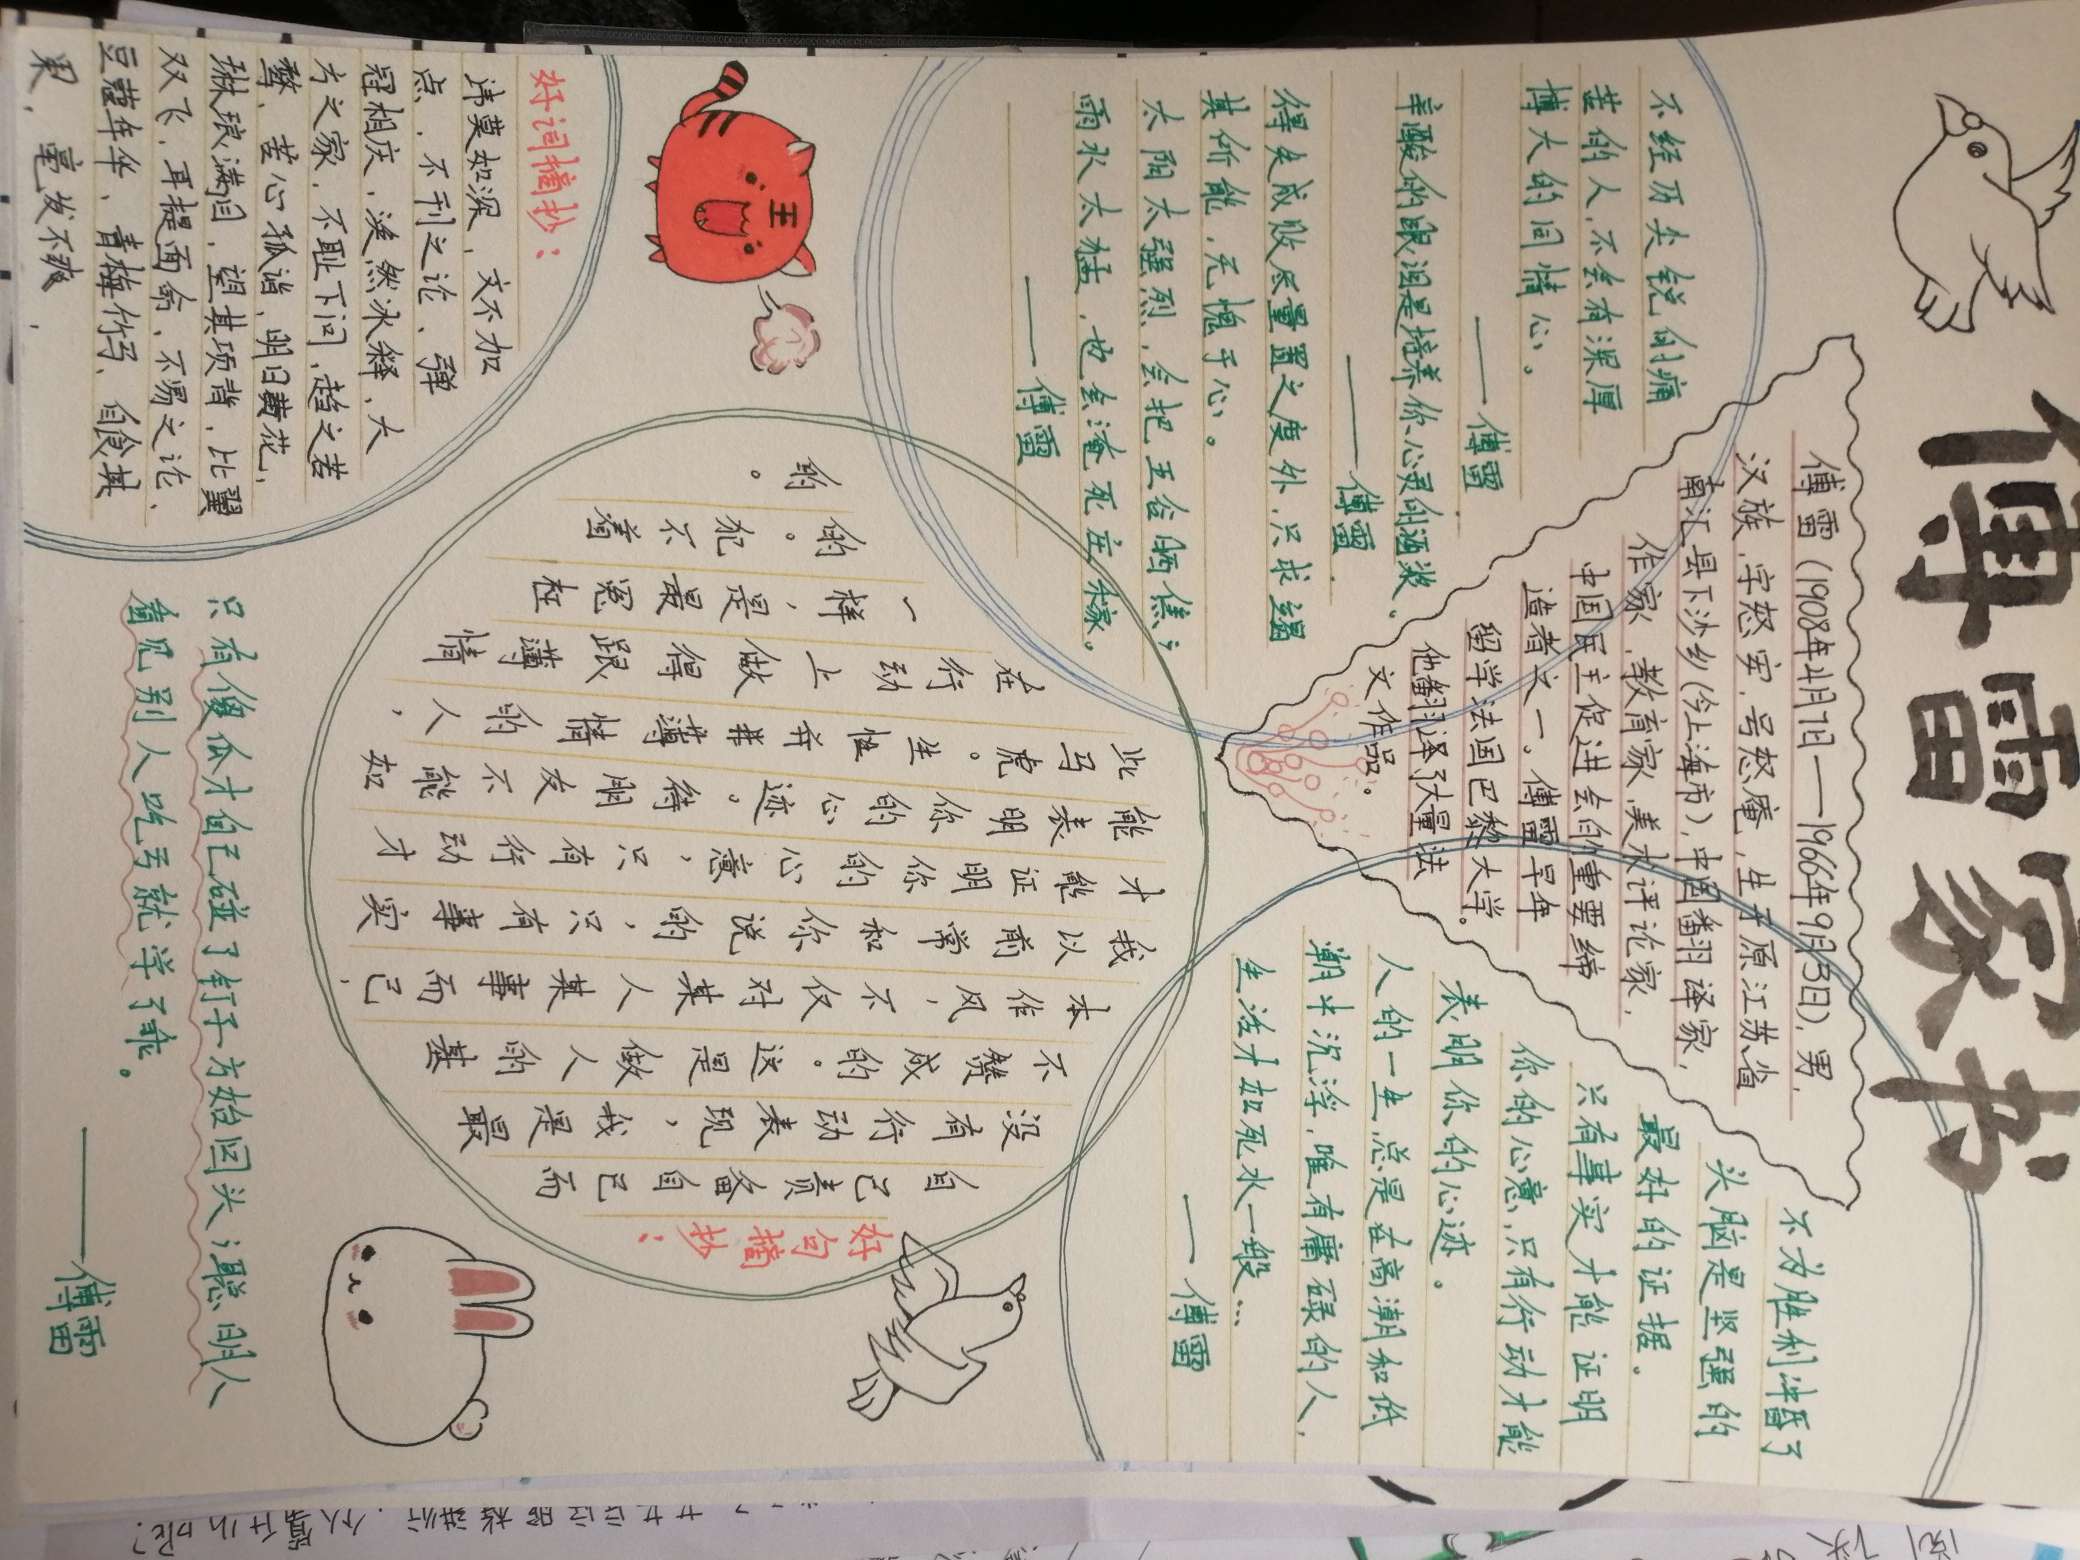 傅雷家书
傅雷(1908年4月7日——1966年9月3日),男,
汉族,字怒安,号怒庵,生于原江苏省
南汇县下沙乡(今上海市),中国翻译家,
作家,教育家,美术评论家,
中国民主促进会的重要缔
造者之一。傅雷早年
留学法国巴黎大学。
他翻译了大量法
文作品。
不经历尖锐的痛
苦的人,不会有深厚
博大的同情心。
——傅雷
辛酸的眼泪是培养你心灵的酒浆。
——傅雷
得失成败尽量置之度外,只求竭
其所能,无愧于心。
太阳太强烈,会把五谷晒焦;
雨水太猛,也会淹死庄稼。
——傅雷
不为胜利冲昏了
头脑是坚强的
最好的证据。
只有事实才能证明
你的心意,只有行动才能
表明你的心迹。
人的一生,总是在高潮和低
潮中沉浮,唯有庸碌的人,
生活才如死水一般…
——傅雷
好句摘抄:
自己责备自己而
没有行动表现,我是最
不赞成的。这是做人的基
本作风,不仅对某人某事而已,
我以前常和你说的,只有事实
才能证明你的心意,只有行动才
能表明你的心迹。待朋友不能如
此马虎。生性并非薄情的人,
在行动上做得跟薄情
一样,是最冤枉
的。犯不着
的。
王
好词摘抄:
讳莫如深,文不加
点,不刊之论,弹
冠相庆,涣然冰释,大
方之家,不耻下问,趋之若
鹜,苦心孤诣,明日黄花,
琳琅满目,望其项背,比翼
双飞,耳提面命,不易之论,
豆蔻年华,青梅竹马,自食其
果,毫发不爽,
只有傻瓜才自己碰了钉子方始回头;聪明人
看见别人吃亏就学了乖。
——傅雷